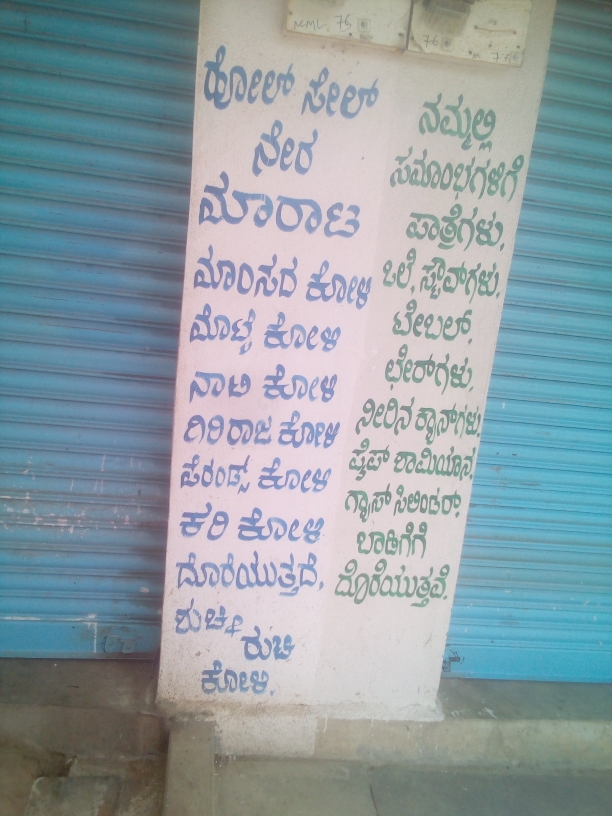 MML. 75
76
ಹೋಲ್ ಸೇಲ್
ನೇರ
ಮಾರಾಟ
ಮಾಂಸದ ಕೋಳಿ
ಮೊಟ್ಟೆ ಕೋಳಿ
ನಾಟಿ ಕೋಳಿ
ಗಿರಿರಾಜ ಕೋಳಿ
ಪೆರಂಟ್ಸ್ ಕೋಳಿ
ಕರಿ ಕೋಳಿ
ದೊರೆಯುತ್ತದೆ,
ಶುಚಿ &
ರುಚಿ
ಕೋಳಿ.
ನಮ್ಮಲ್ಲಿ
ಸಮಾರಂಭಗಳಿಗೆ
ಪಾತ್ರೆಗಳು,
ಒಲೆ, ಸ್ಟೌವ್‌ಗಳು.
ಟೇಬಲ್.
ಛೇರ್‌ಗಳು,
ನೀರಿನ ಕ್ಯಾನ್‌ಗಳು.
ಪೈಪ್ ಶಾಮಿಯಾನ.
ಗ್ಯಾಸ್ ಸಿಲಿಂಡರ್.
ಬಾಡಿಗೆಗೆ
ದೊರೆಯುತ್ತವೆ.